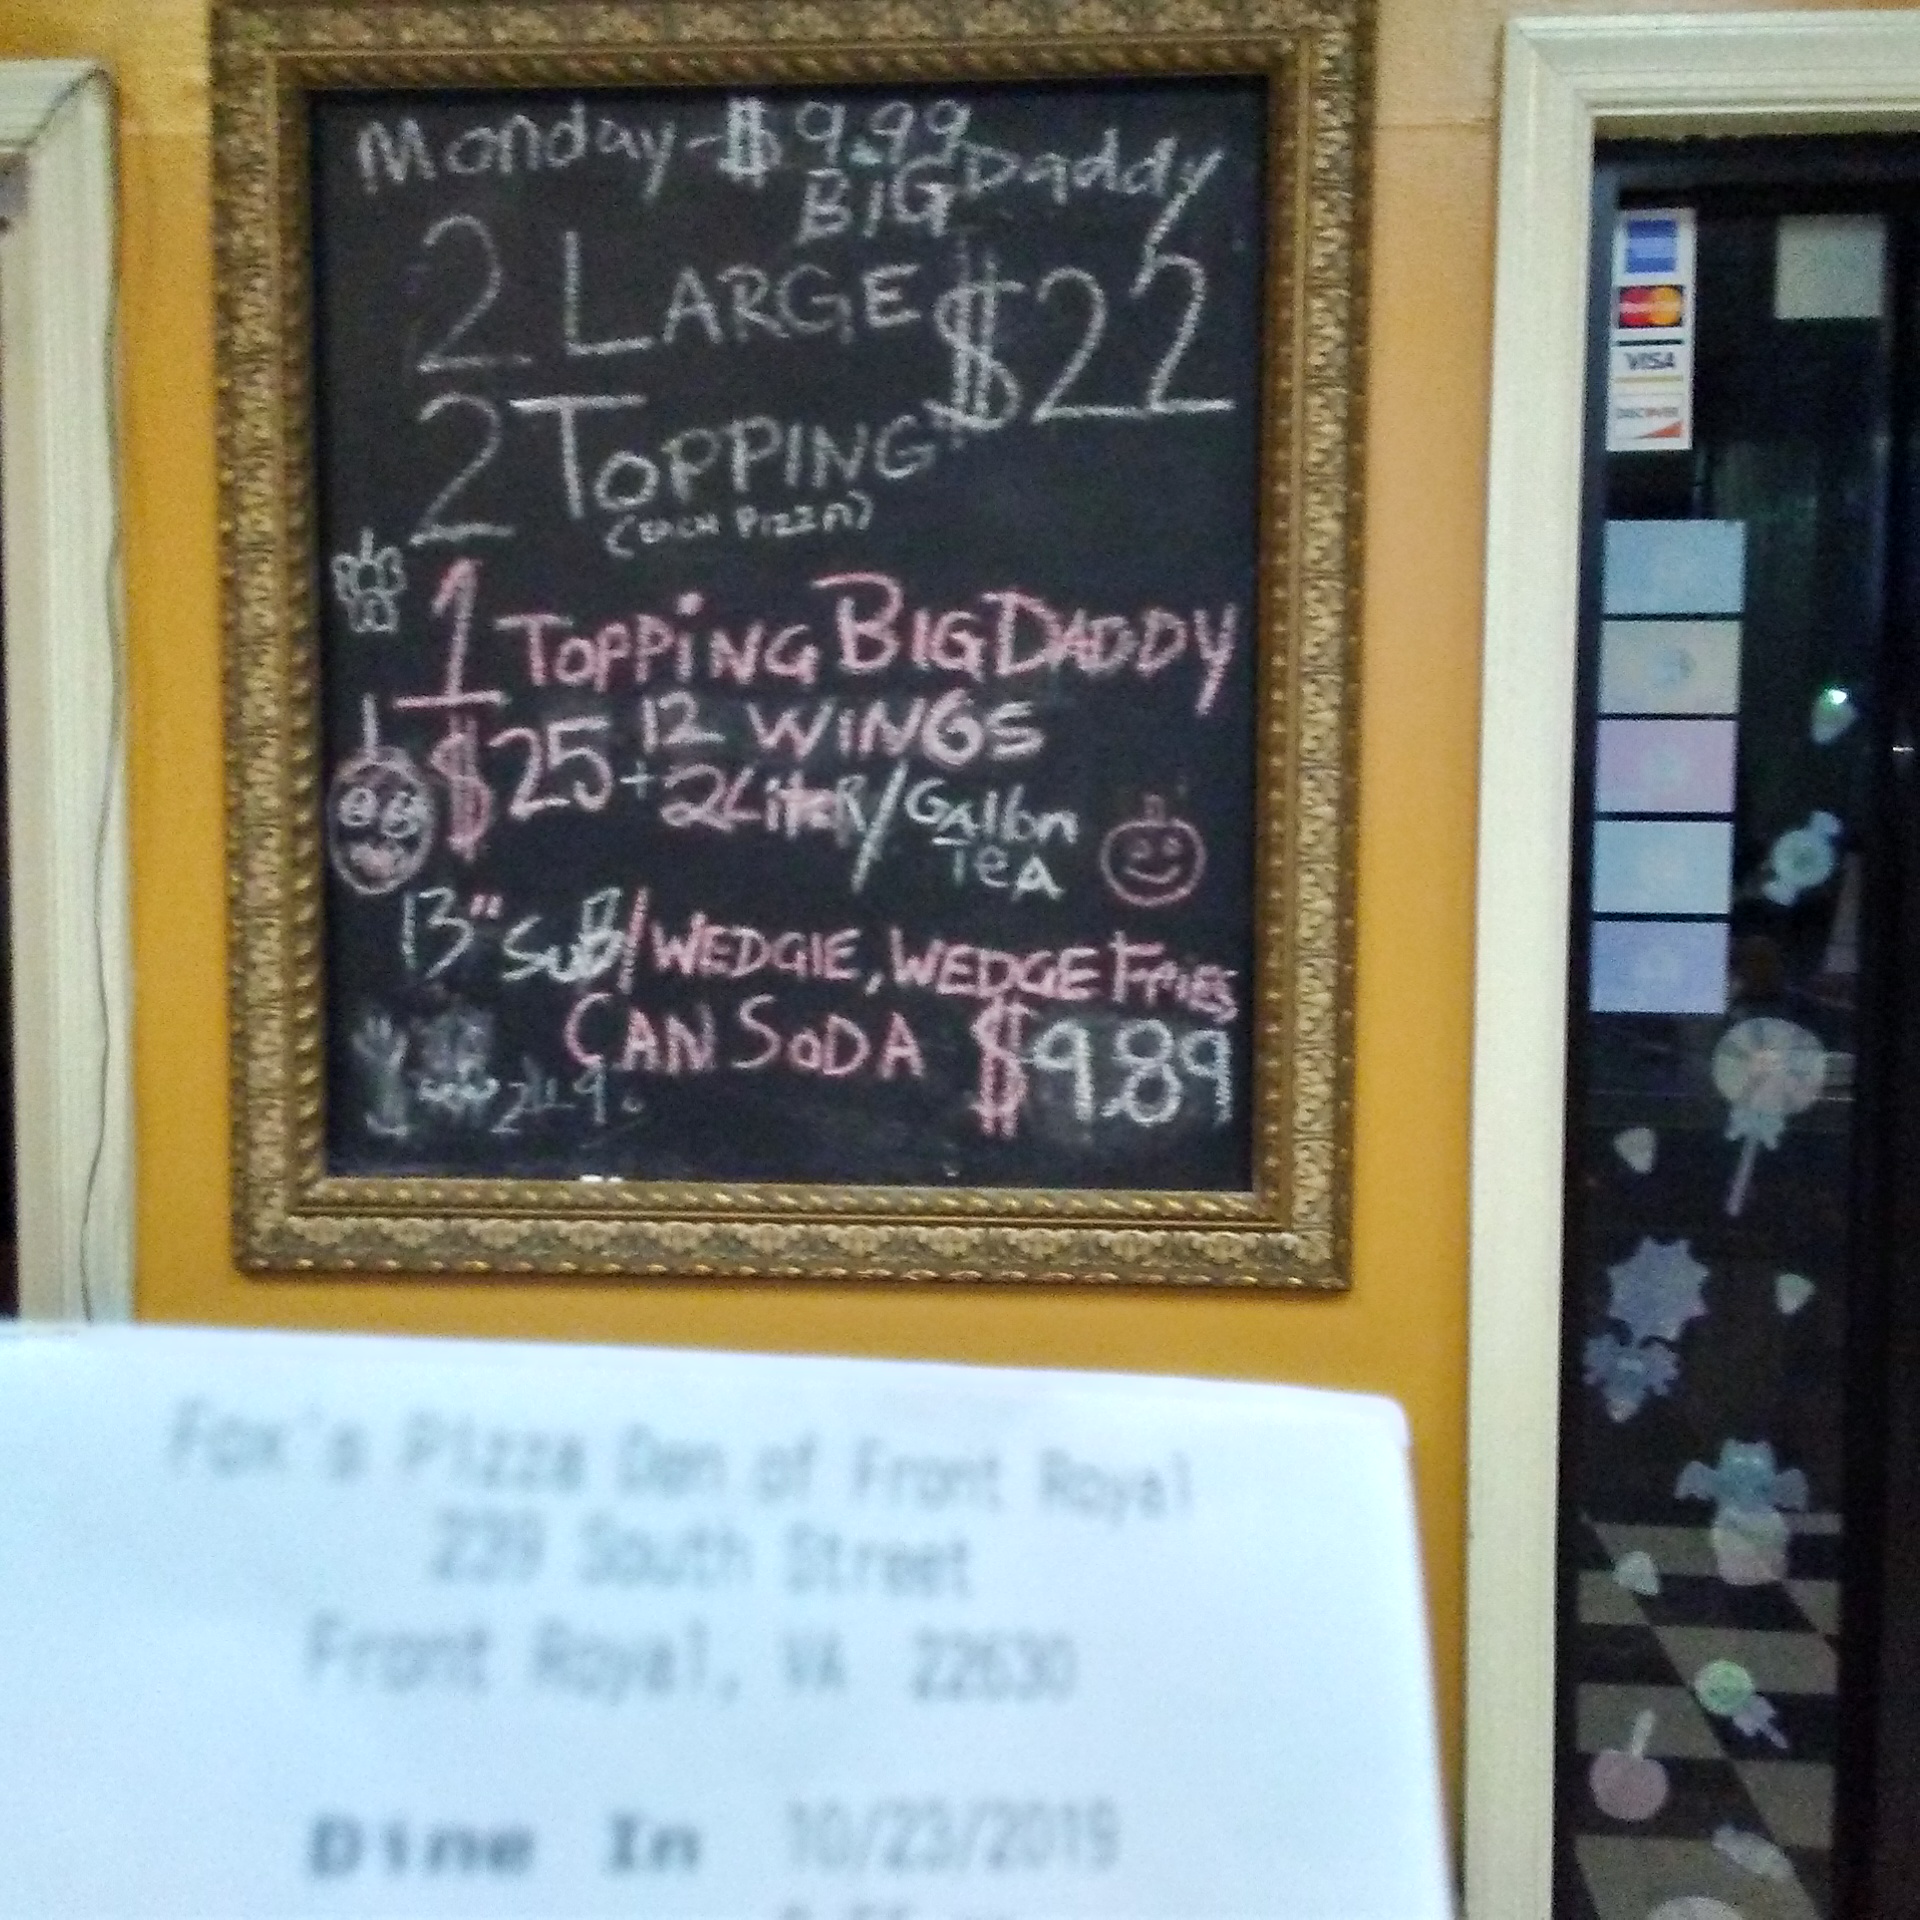 Monday-$9.99
BIG Daddy
2 LARGE $22
2 TOPPING
(EACH PIZZA)
1 TOPPiNG BIG DADDY
$25 + 12 WiNGS
2LiteR/Gallon
TeA
13" SuB/WEDGIE, WEDGE FRiES
CAN SoDA $9.89
AMERICAN EXPRESS
MasterCard
VISA
DISCOVER
Fox's Pizza Den of Front Royal
239 South Street
Front Royal, VA 22630
Dine In 10/23/2019